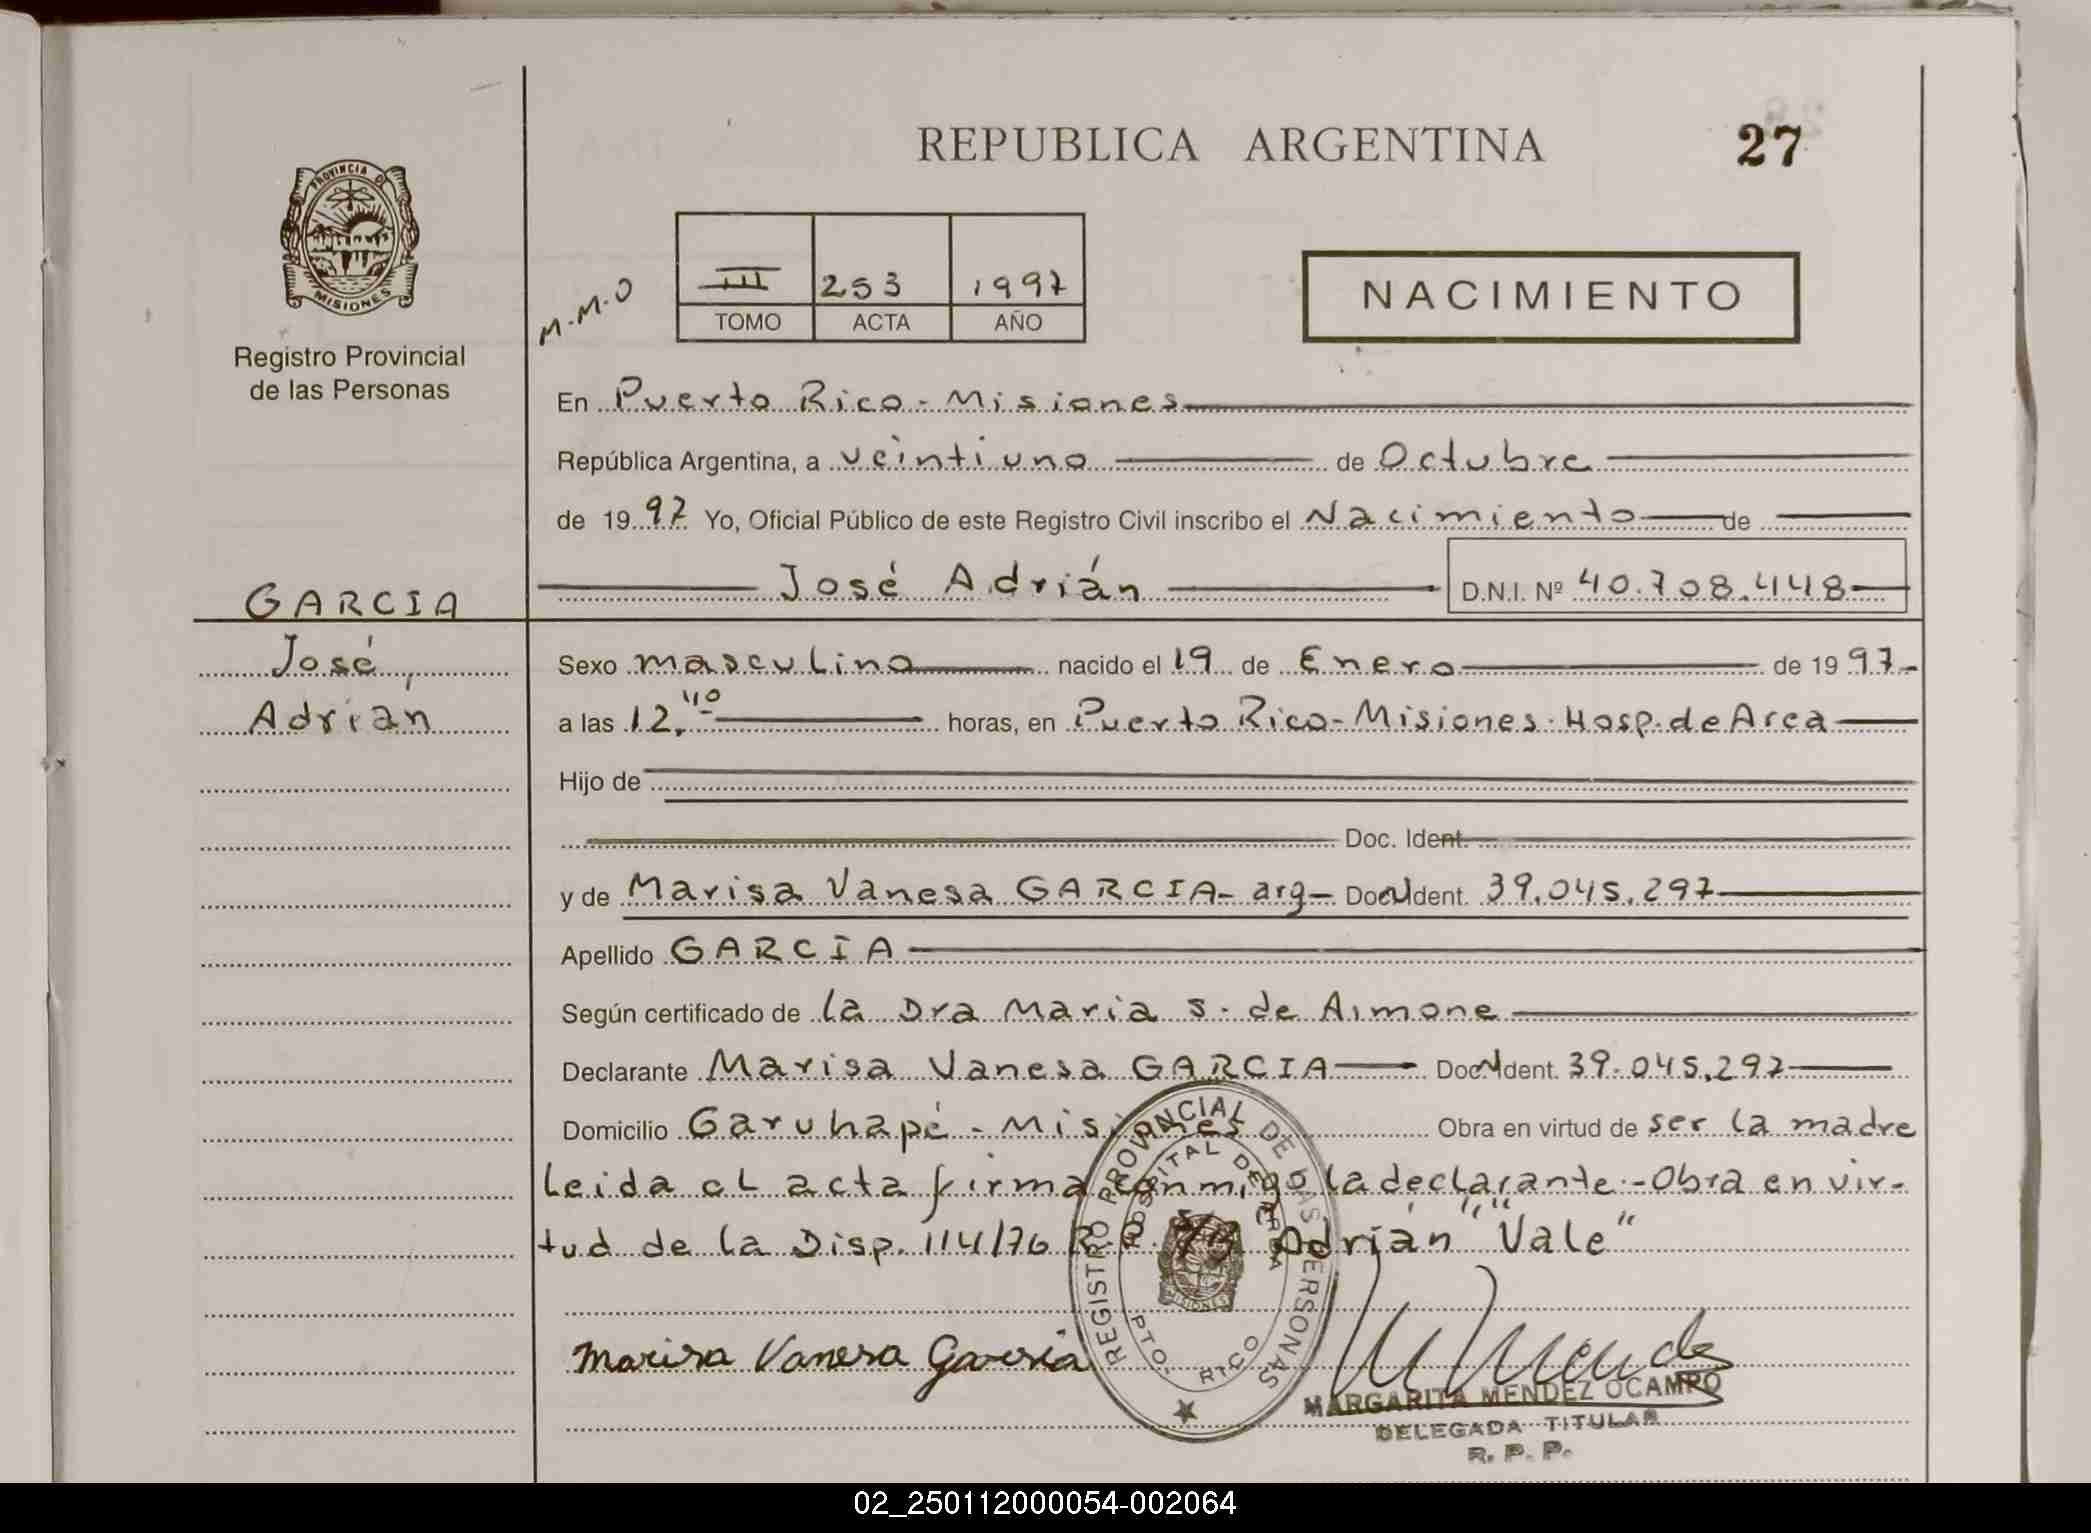 REPUBLICA ARGENTINA
27
PROVINCIA DE
MISIONES
Registro Provincial
de las Personas
M.M.O
III 253 1997
TOMO ACTA AÑO
NACIMIENTO
En Puerto Rico - Misiones
República Argentina, a veintiuno de Octubre
de 1997 Yo, Oficial Público de este Registro Civil inscribo el Nacimiento de
José Adrián D.N.I. Nº 40.708.448
GARCIA
José
Adrián
Sexo masculino nacido el 19 de Enero de 1997
a las 12,40 horas, en Puerto Rico - Misiones. Hosp. de Area
Hijo de
Doc. Ident.
y de Marisa Vanesa GARCIA - arg - Doc N Ident. 39.045.297
Apellido GARCIA
Según certificado de la Dra Maria S. de Aimone
Declarante Marisa Vanesa GARCIA Doc N Ident. 39.045.297
Domicilio Garuhapé - Misiones Obra en virtud de ser la madre
leida el acta firma conmigo la declarante.- Obra en vir-
tud de la Disp. 114/76 R.P. S/B Adrián "Vale"
REGISTRO PROVINCIAL DE LAS PERSONAS
HOSPITAL DE AREA
PTO. RICO
MISIONES
Marisa Vanesa Garcia
MARGARITA MENDEZ OCAMPO
DELEGADA TITULAR
R. P. P.
02_250112000054-002064